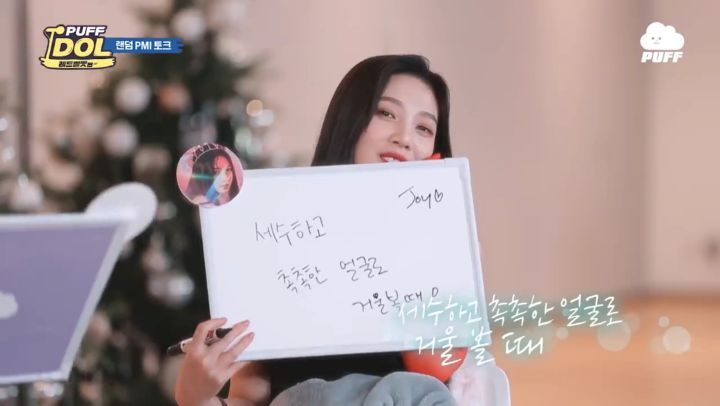 PUFF
IDOL
레드벨벳 편
랜덤 PMI 토크
PUFF
Joy♡
세수하고
촉촉한 얼굴로
거울 볼 때 ♡
세수하고 촉촉한 얼굴로
거울 볼 때